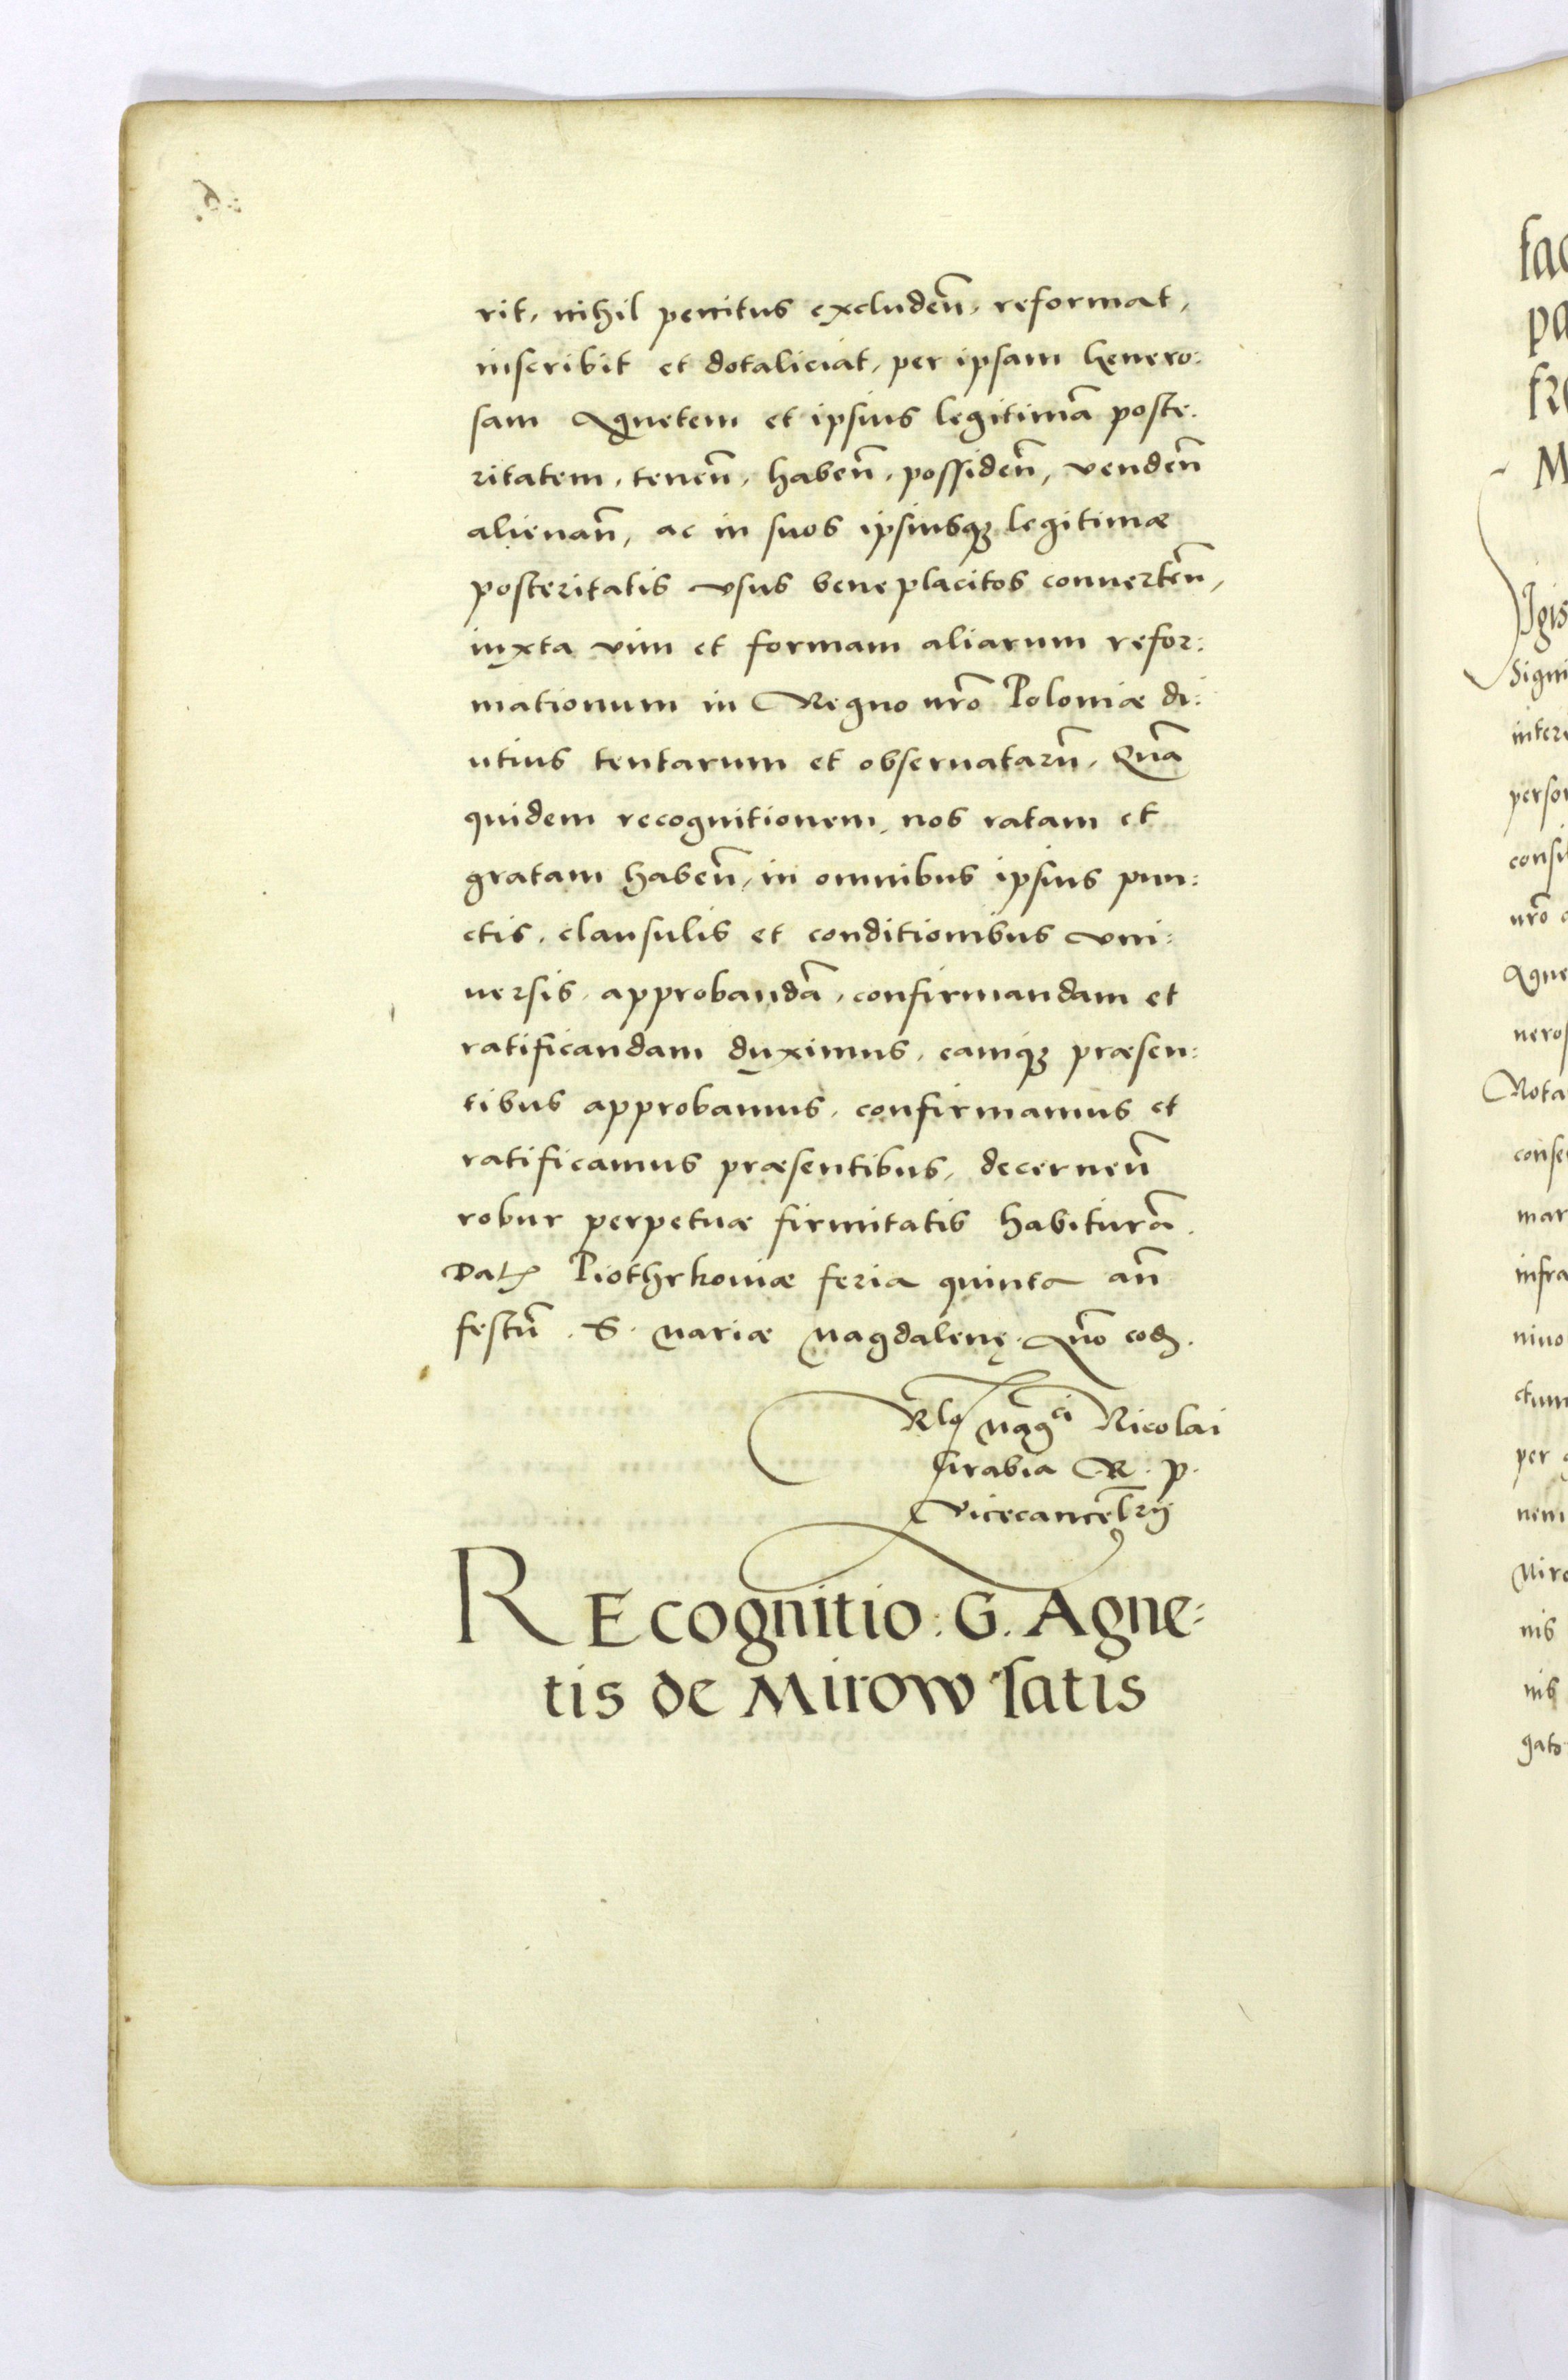 rit, nihil penitus excluden̄, reformat,
inscribit et dotaliciat, per ipsam Genero:
sam Agnetem et ipsius legitimā poste:
ritatem, tenen̄, haben̄, possiden̄, venden̄
alienan̄, ac in suos ipsiusq̢ legitimæ
posteritatis vsus beneplacitos conuerten̄,
iuxta vim et formam aliarum refor:
mationum in Regno nr̄o Poloniæ di:
utius tentarum et obseruatarū, Quā
quidem recognitionem, nos ratam et
gratam haben̄, in omnibus ipsius pun:
ctis, clausulis et conditionibus vni:
uersis, approbandā, confirmandam et
ratificandam duximus, eamq̢ præsen:
tibus approbamus, confirmamus et
ratificamus præsentibus, decernen̄
robur perpetuæ firmitatis habiturā.
Dat Piothrkouiæ feria quinta an̄
festū . S. Mariæ Magdalenę. Āno eod.
Rlo Maḡci Nicolai
Grabia R. P.
Vicecancel̄rij
REcognitio: G. Agne:
tis de Mirow satis
fac
pa
M
Sigis
Signi
inter
perso
consi
nr̄o
Agne
neros
Nota
conse
mar
infra
niuo
ctum
per
nem
Miro
nis
nis
gato